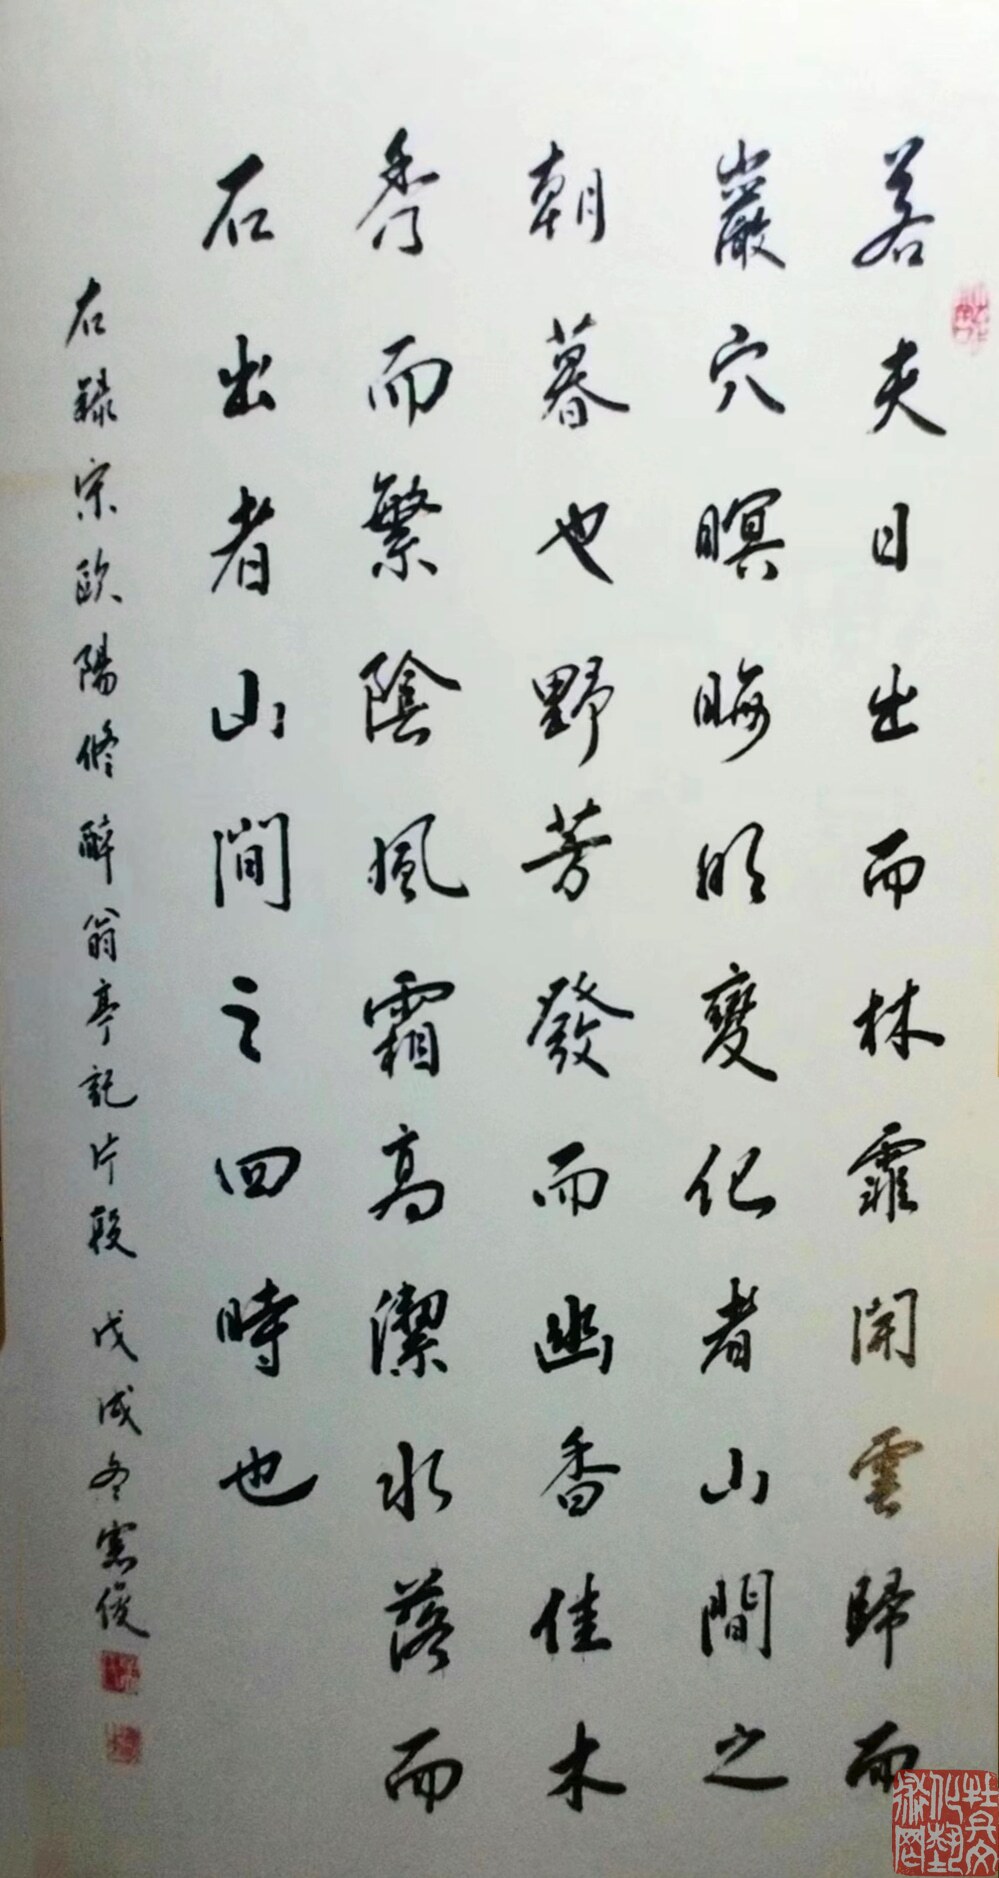 若夫日出而林霏開雲歸而
巖穴暝晦明變化者山間之
朝暮也野芳發而幽香佳木
秀而繁陰風霜高潔水落而
石出者山間之四時也
右録宋歐陽修醉翁亭記片段 戊戌冬憲俊